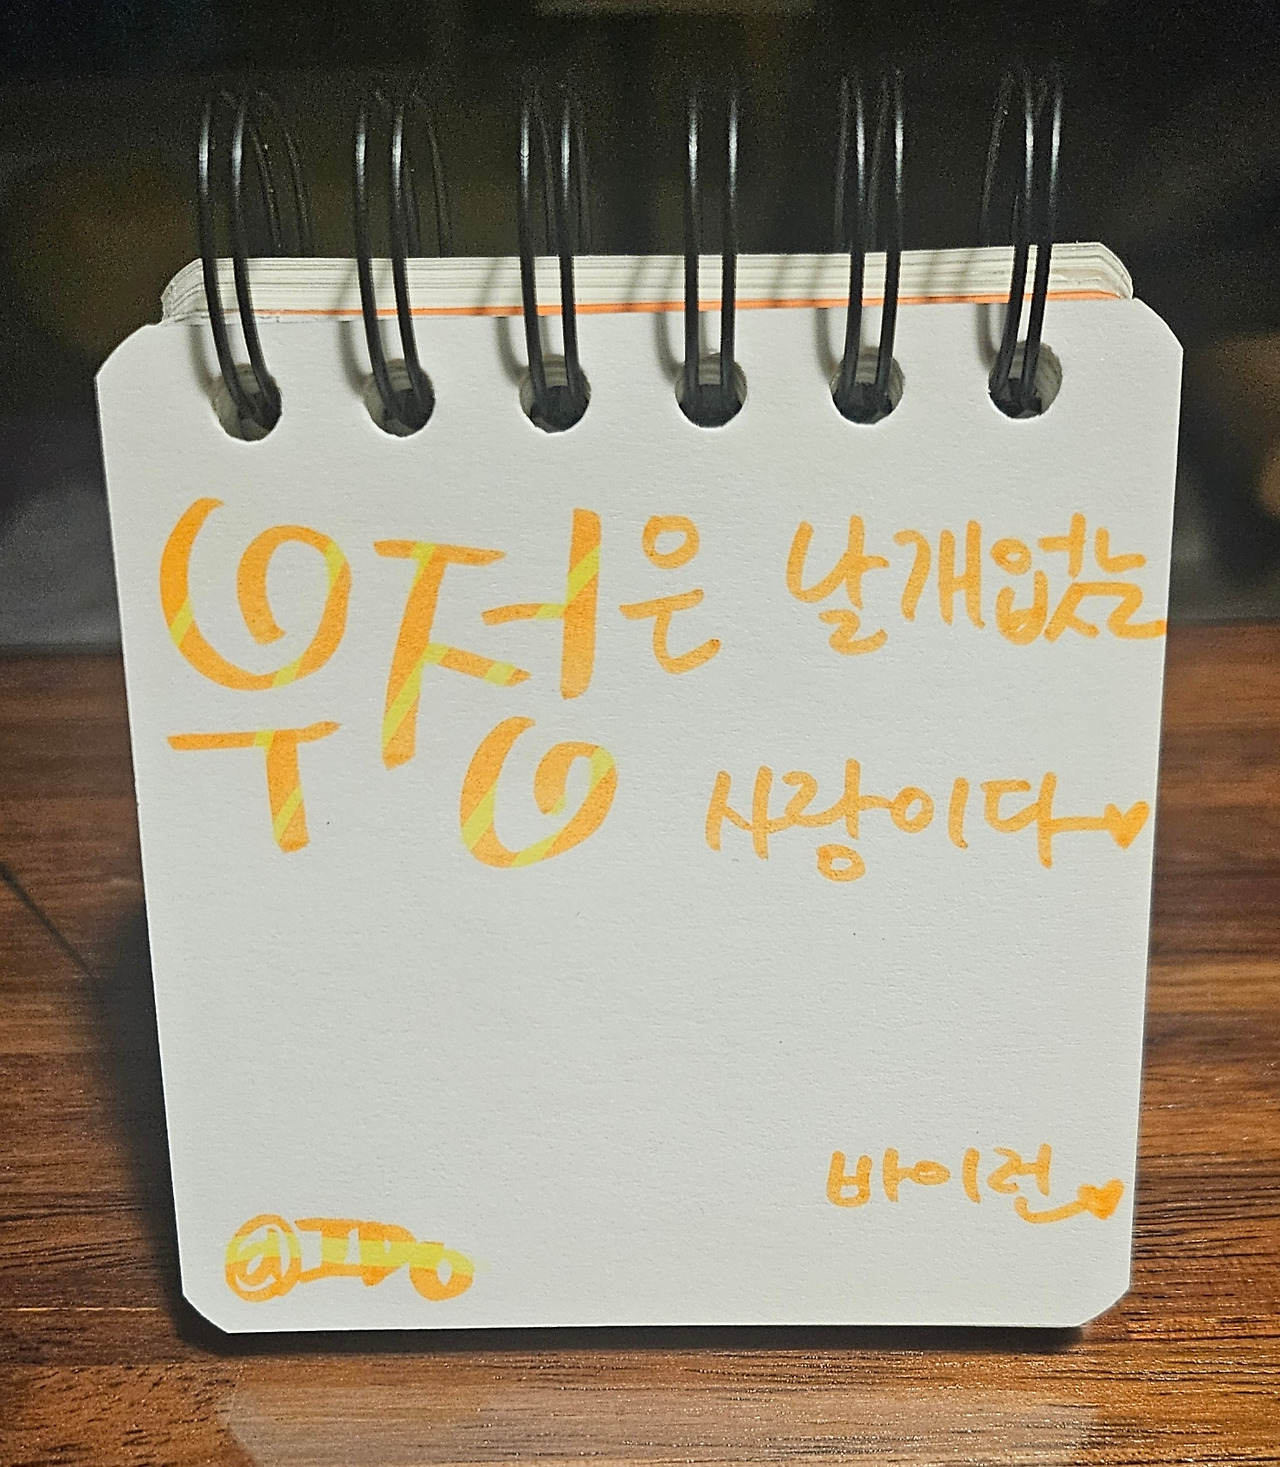 우정은 날개없는
사랑이다♥
바이런♥
@IDo